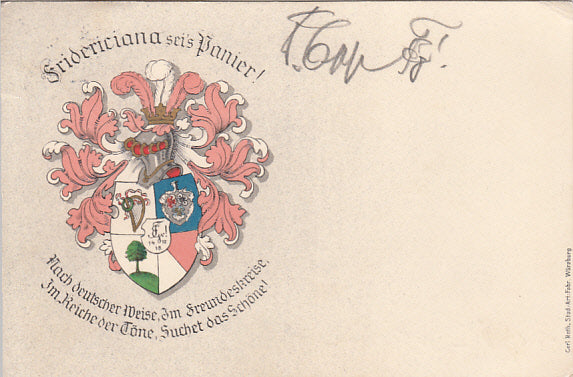 Fridericiana sei's Panier!
Nach deutscher Weise, Im Freundeskreise,
Im Reiche der Töne, Suchet das Schöne!
Carl Roth, Stud.-Art.-Fabr. Würzburg